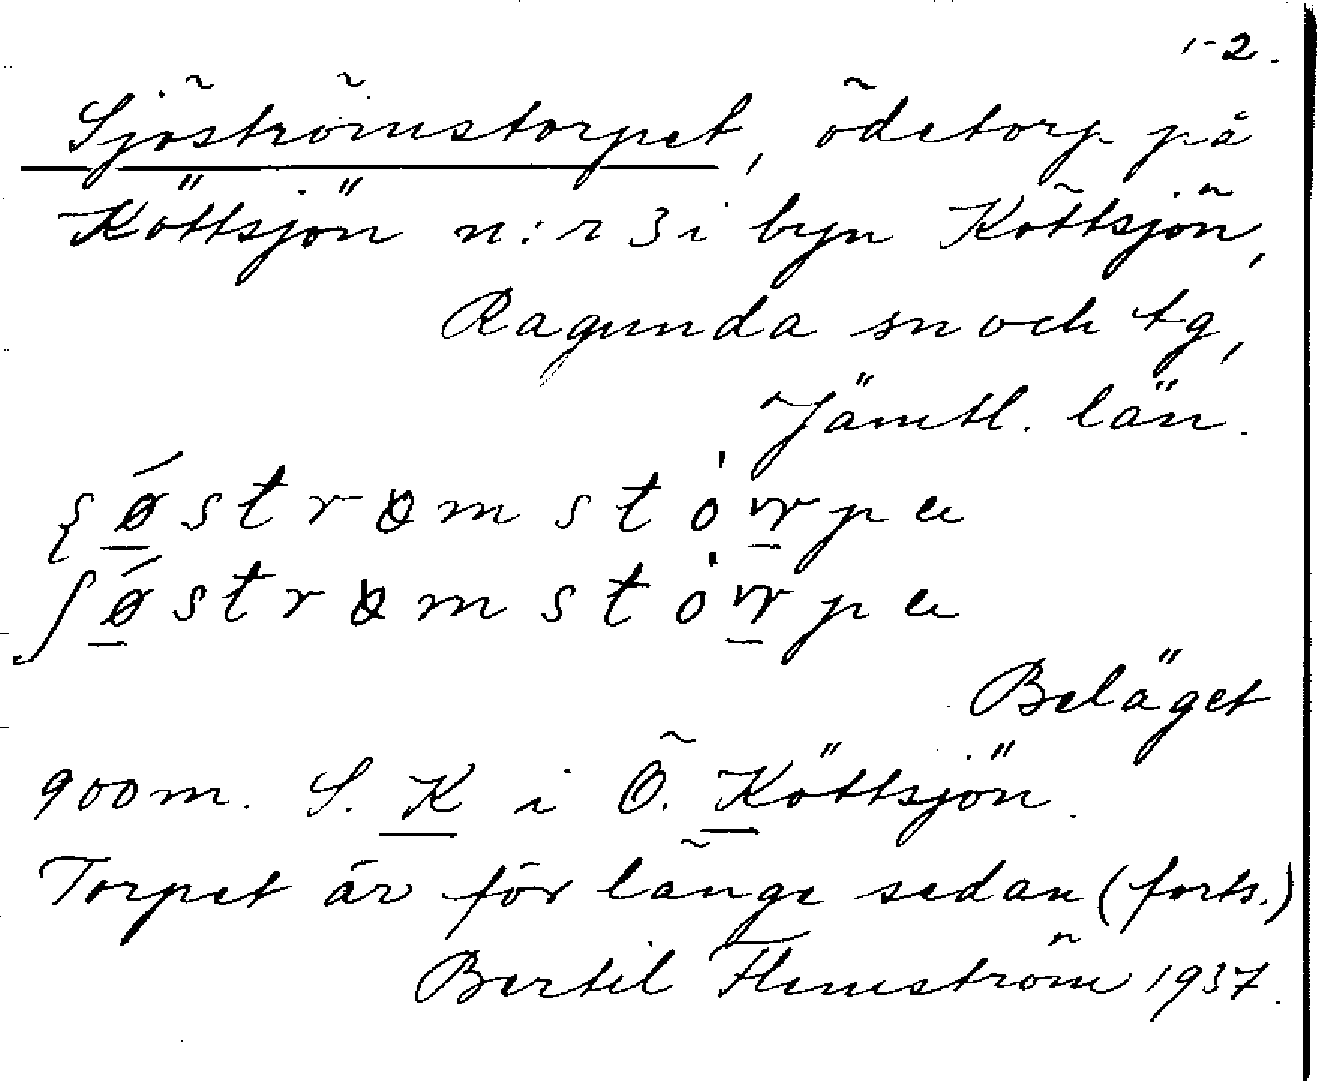 1-2.
Sjöströmstorpet, ödetorp på
Köttsjön n:r 3 i byn Köttsjön,
Ragunda sn och tg,
Jämtl. län.
Beläget
900 m. S. K i Ö. Köttsjön.
Torpet är för länge sedan (forts.)
Bertil Flemström 1937.